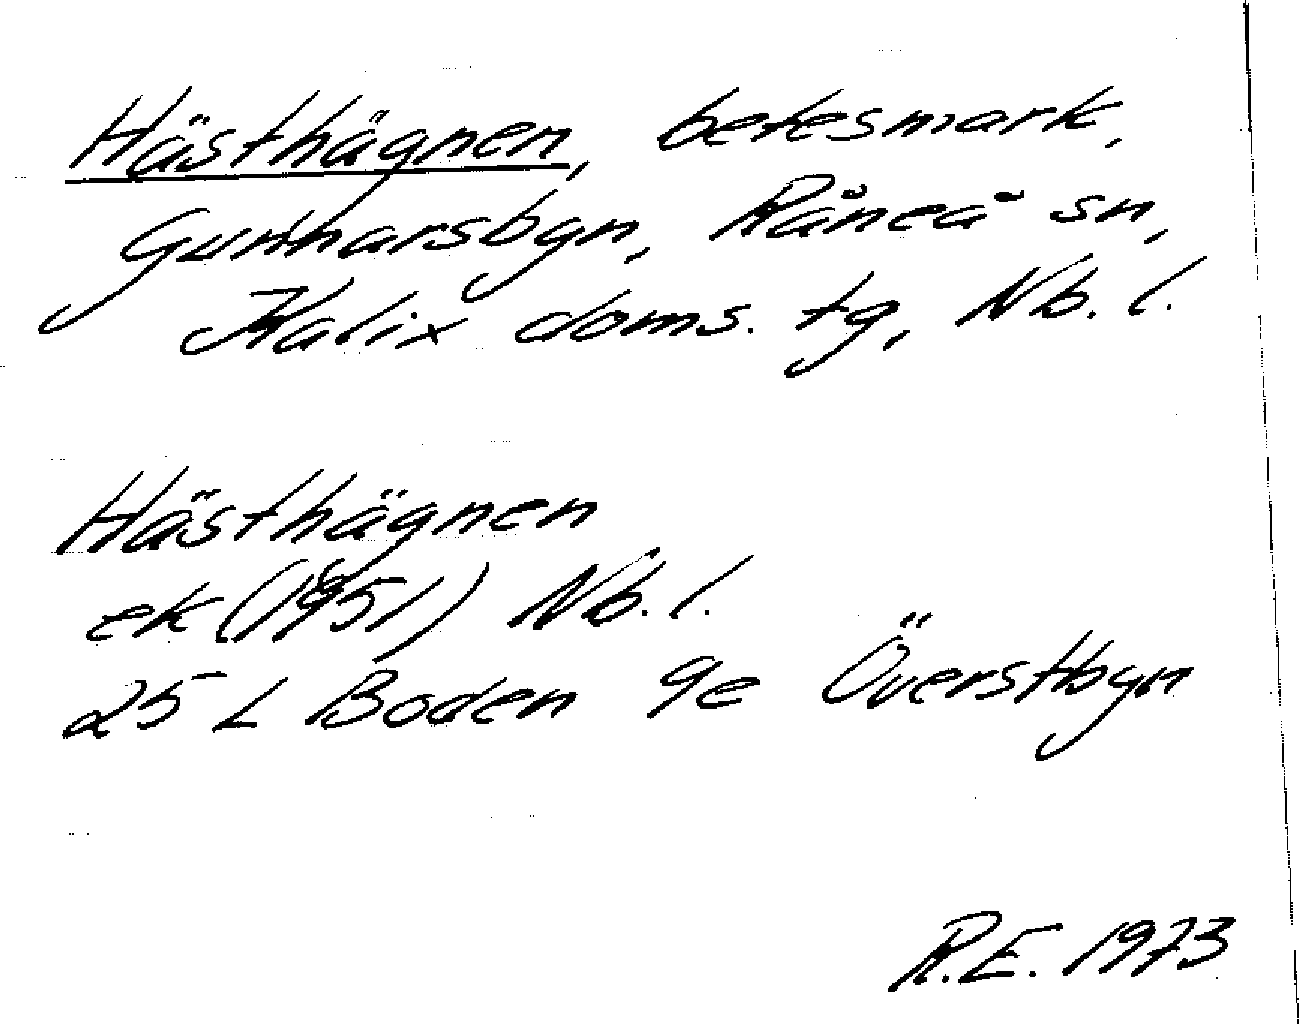 Hästhägnen, betesmark,
Gunnarsbyn, Råneå sn,
Kalix doms. tg, Nb. l.
Hästhägnen
ek (1951) Nb. l.
25 L Boden 9e Överstbyn
R.E. 1973